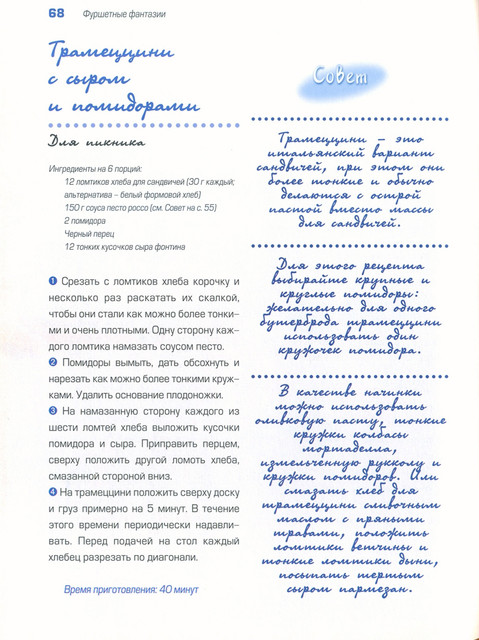 68 Фуршетные фантазии
Трамеццини
с сыром
и помидорами
Для пикника
Ингредиенты на 6 порций:
12 ломтиков хлеба для сандвичей (30 г каждый;
альтернатива – белый формовой хлеб)
150 г соуса песто россо (см. Совет на с. 55)
2 помидора
Черный перец
12 тонких кусочков сыра фонтина
1 Срезать с ломтиков хлеба корочку и
несколько раз раскатать их скалкой,
чтобы они стали как можно более тонки-
ми и очень плотными. Одну сторону каж-
дого ломтика намазать соусом песто.
2 Помидоры вымыть, дать обсохнуть и
нарезать как можно более тонкими круж-
ками. Удалить основание плодоножки.
3 На намазанную сторону каждого из
шести ломтей хлеба выложить кусочки
помидора и сыра. Приправить перцем,
сверху положить другой ломоть хлеба,
смазанной стороной вниз.
4 На трамеццини положить сверху доску
и груз примерно на 5 минут. В течение
этого времени периодически надавли-
вать. Перед подачей на стол каждый
хлебец разрезать по диагонали.
Время приготовления: 40 минут
Совет
Трамеццини – это
итальянский вариант
сандвичей, при этом они
более тонкие и обычно
делаются с острой
пастой вместо массы
для сандвичей.
Для этого рецепта
выбирайте крупные и
круглые помидоры:
желательно для одного
бутерброда трамеццини
использовать один
кружочек помидора.
В качестве начинки
можно использовать
оливковую пасту, тонкие
кружки колбасы
мортаделла,
измельченную рукколу и
кружки помидоров. Или
смазать хлеб для
трамеццини сливочным
маслом с пряными
травами, положить
ломтики ветчины и
тонкие ломтики дыни,
посыпать тертым
сыром пармезан.